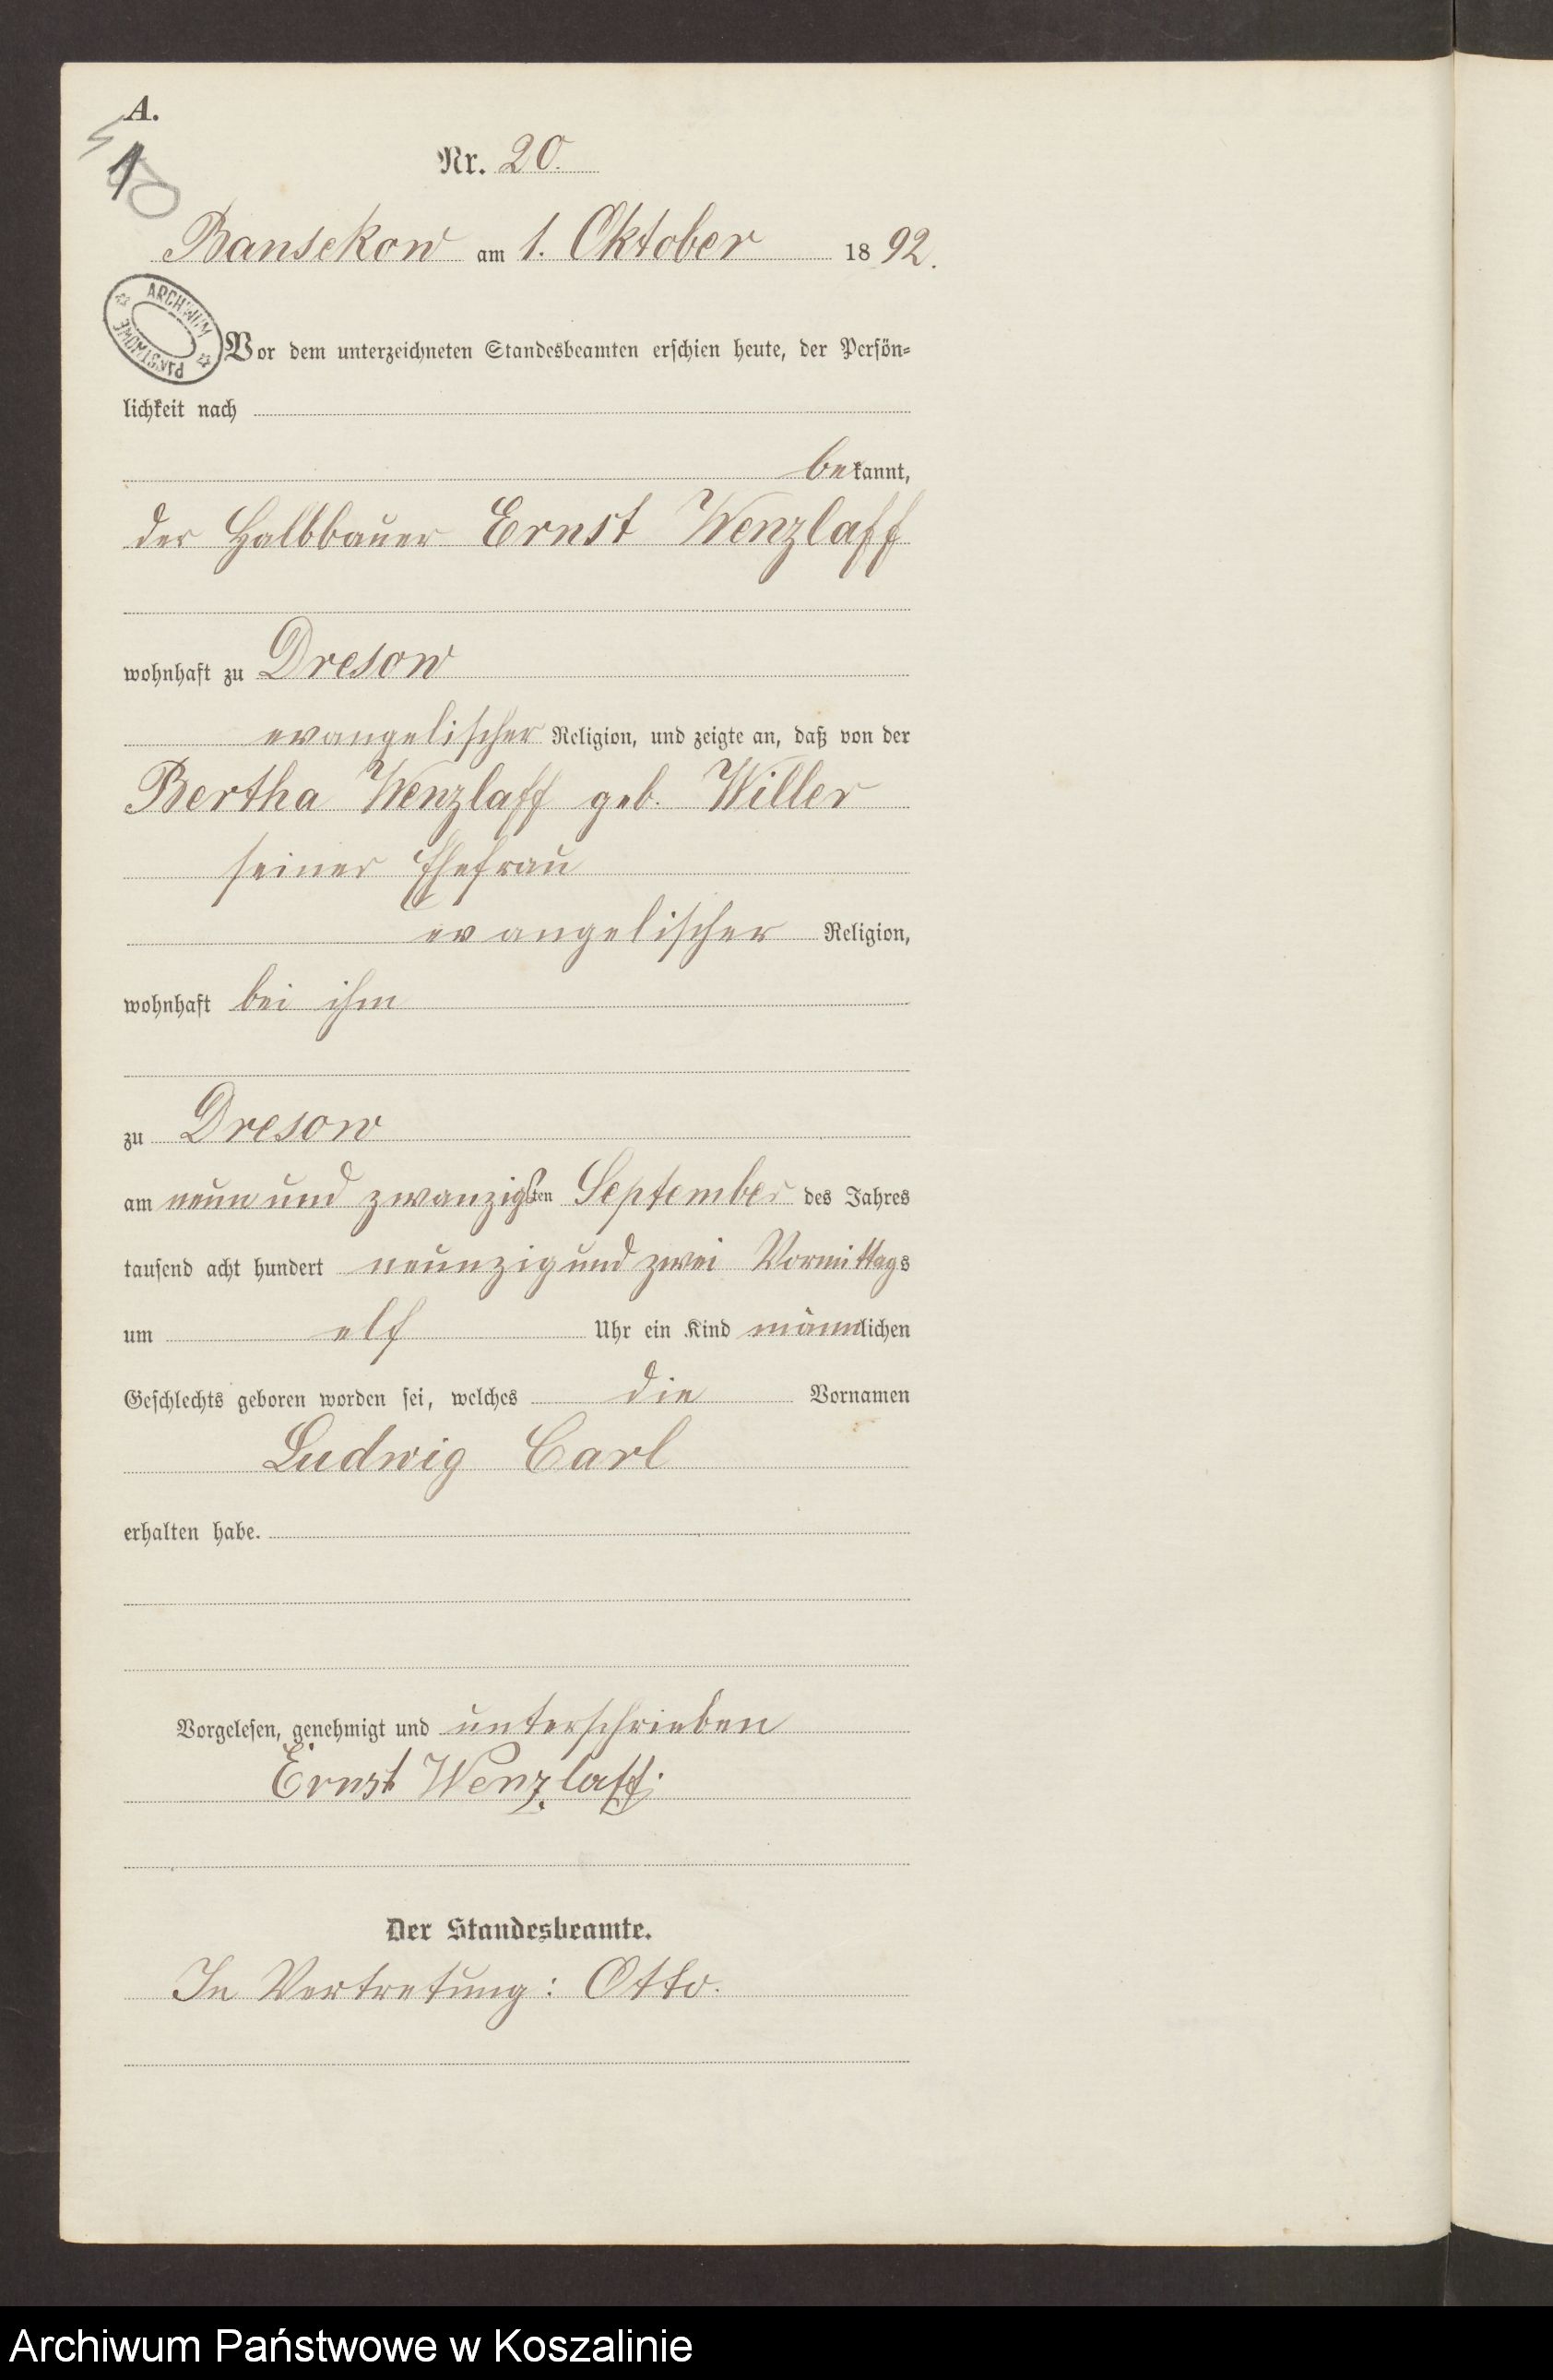 A.
Nr. 20.
Bansekow am 1. Oktober 1892.
ARCHIWUM PAŃSTWOWE
Vor dem unterzeichneten Standesbeamten erschien heute, der Persön-
lichkeit nach
bekannt,
der Halbbauer Ernst Wenzlaff
wohnhaft zu Dresow
evangelischer Religion, und zeigte an, daß von der
Bertha Wenzlaff geb. Willer
seiner Ehefrau
evangelischer Religion,
wohnhaft bei ihm
zu Dresow
am neun und zwanzigsten September des Jahres
tausend acht hundert neunzig und zwei Vormittags
um elf Uhr ein Kind männlichen
Geschlechts geboren worden sei, welches die Vornamen
Ludwig Carl
erhalten habe.
Vorgelesen, genehmigt und unterschrieben
Ernst Wenzlaff.
Der Standesbeamte.
In Vertretung: Otto.
Archiwum Państwowe w Koszalinie